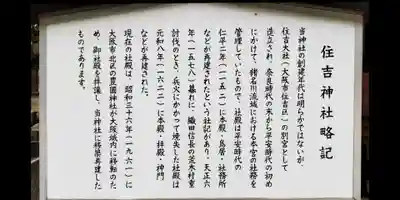 住吉神社略記
当神社の創建年代は明らかではないが、
住吉大社(大阪市住吉区)の別宮として
造立され、奈良時代の末から平安時代の初め
にかけて、猪名川流域における本宮の社務を
管理していたもので、社殿は平安時代の
仁平二年(一一五二)に本殿・鳥居・社務所
などが再建されたという社記があり、天正六
年(一五七八)暮れに、織田信長の荒木村重
討伐のとき、兵火にかかって焼失した社殿は
元和八年(一六二二)に本殿・拝殿・神門
などが再建された。
現在の社殿は、昭和三十六年(一九六一)に
大阪市北区の豊国神社が大阪城内に移動のた
め、御社殿を拝議し、当神社に移築再建した
ものであります。